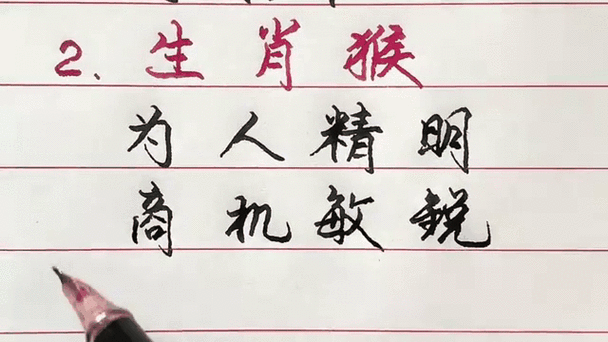 2、生肖猴
为人精明
商机敏锐